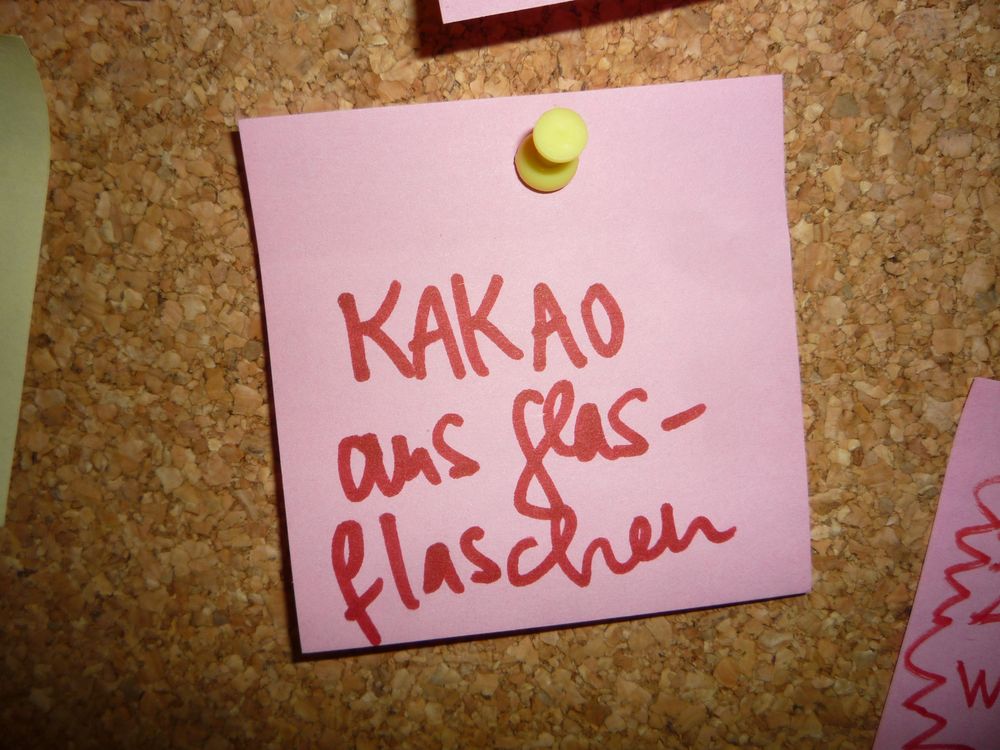 KAKAO
aus Glas-
flaschen
W